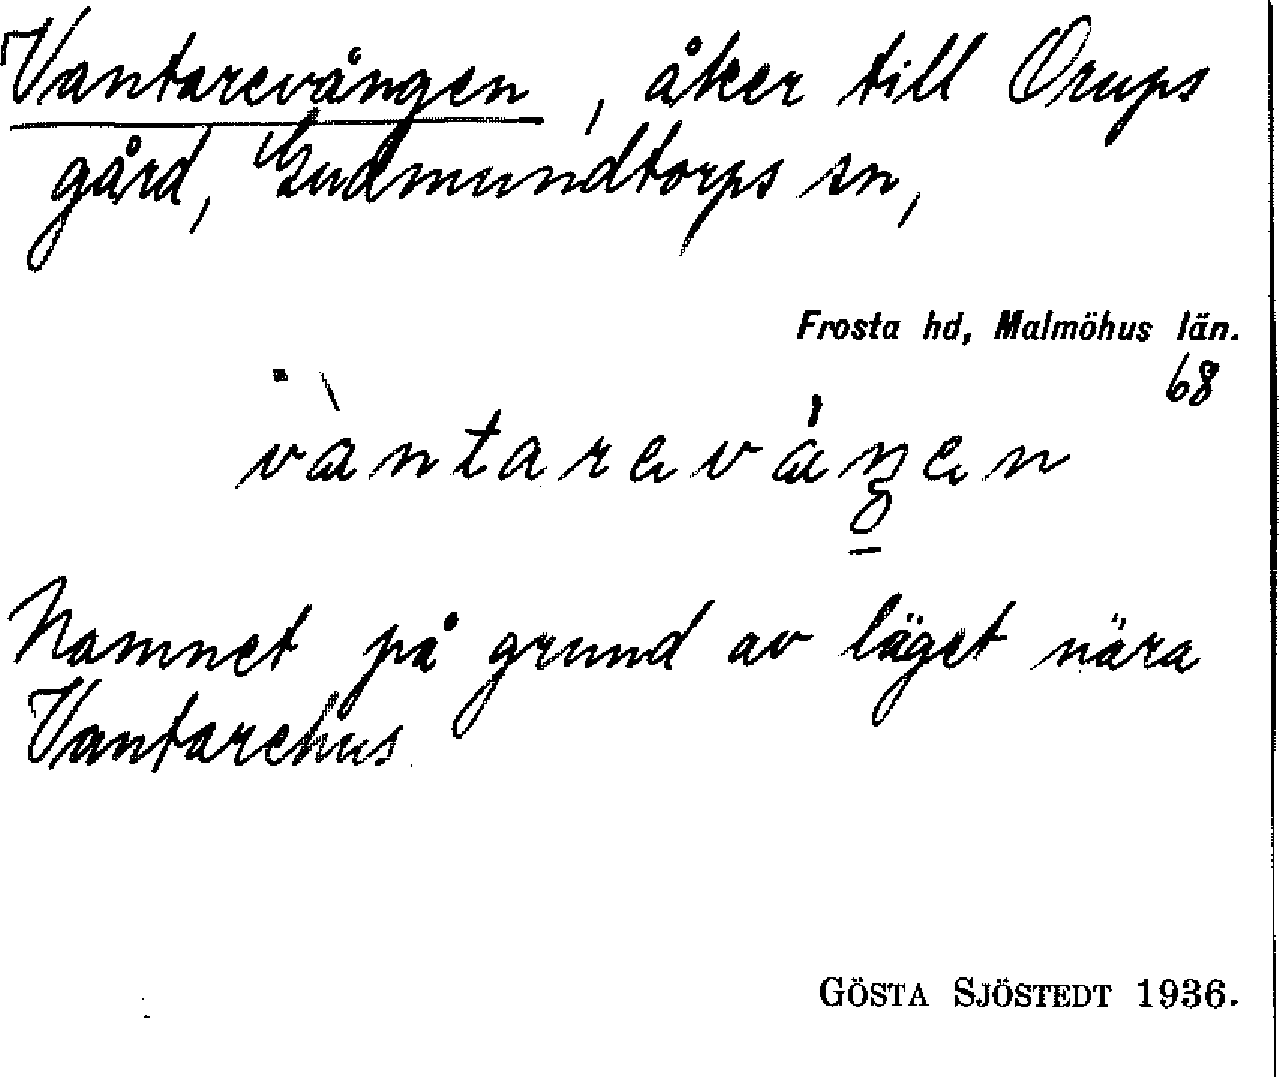 Vantarevången, åker till Orups
gård, Gudmundtorps sn,
Frosta hd, Malmöhus län.
68
vàntareváŋen
Namnet på grund av läget nära
Vantarehus
GÖSTA SJÖSTEDT 1936.